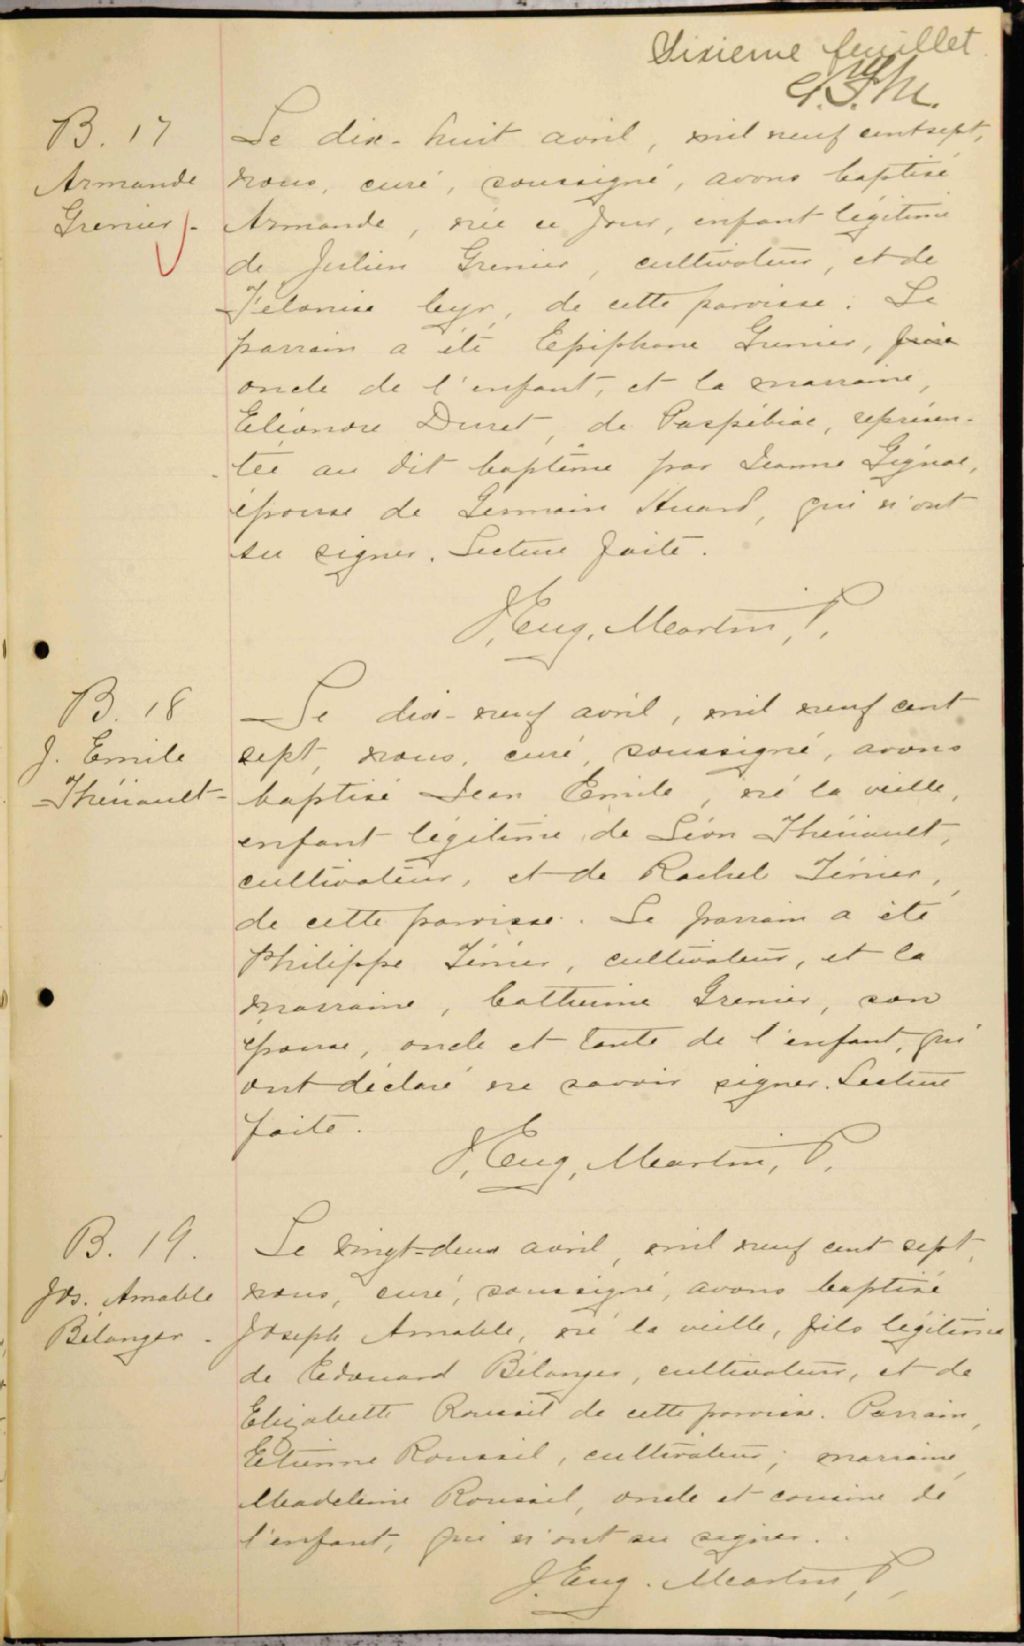 Sixieme feuillet
B. 17
Armande
Grenier.
Le dix-huit avril, mil neuf cent sept,
nous, curé, soussigné, avons baptisé
Armande, née ce jour, enfant légitime
de Julien Grenier, cultivateur, et de
Cyr, de cette paroisse. Le
parrain a été Epiphane Grenier,
oncle de l'enfant, et la marraine,
Eléonore Duret, de Paspébiac, représen-
tée au dit baptême par Jeanne Gignac,
épouse de Germain Huard, qui n'ont
su signer. Lecture faite.
J. Eug. Martin, P.
B. 18
J. Emile
Thériault
Le dix-neuf avril, mil neuf cent
sept, nous, curé, soussigné, avons
baptisé Jean Emile, né la veille,
enfant légitime de Léon Thériault,
cultivateur, et de Rachel
de cette paroisse. Le parrain a été
Philippe cultivateur, et la
marraine, Catherine Grenier, son
épouse, oncle et tante de l'enfant, qui
ont déclaré ne savoir signer. Lecture
faite.
J. Eug. Martin, P.
B. 19.
Jos. Amable
Bélanger.
Le vingt-deux avril, mil neuf cent sept,
nous, curé, soussigné, avons baptisé
Joseph Amable, né la veille, fils légitime
de Edouard Bélanger, cultivateur, et de
Elizabette Roussil de cette paroisse. Parrain,
Etienne Roussil, cultivateur; marraine,
Madeleine Roussil, oncle et cousine de
l'enfant, qui n'ont su signer.
J. Eug. Martin, P.